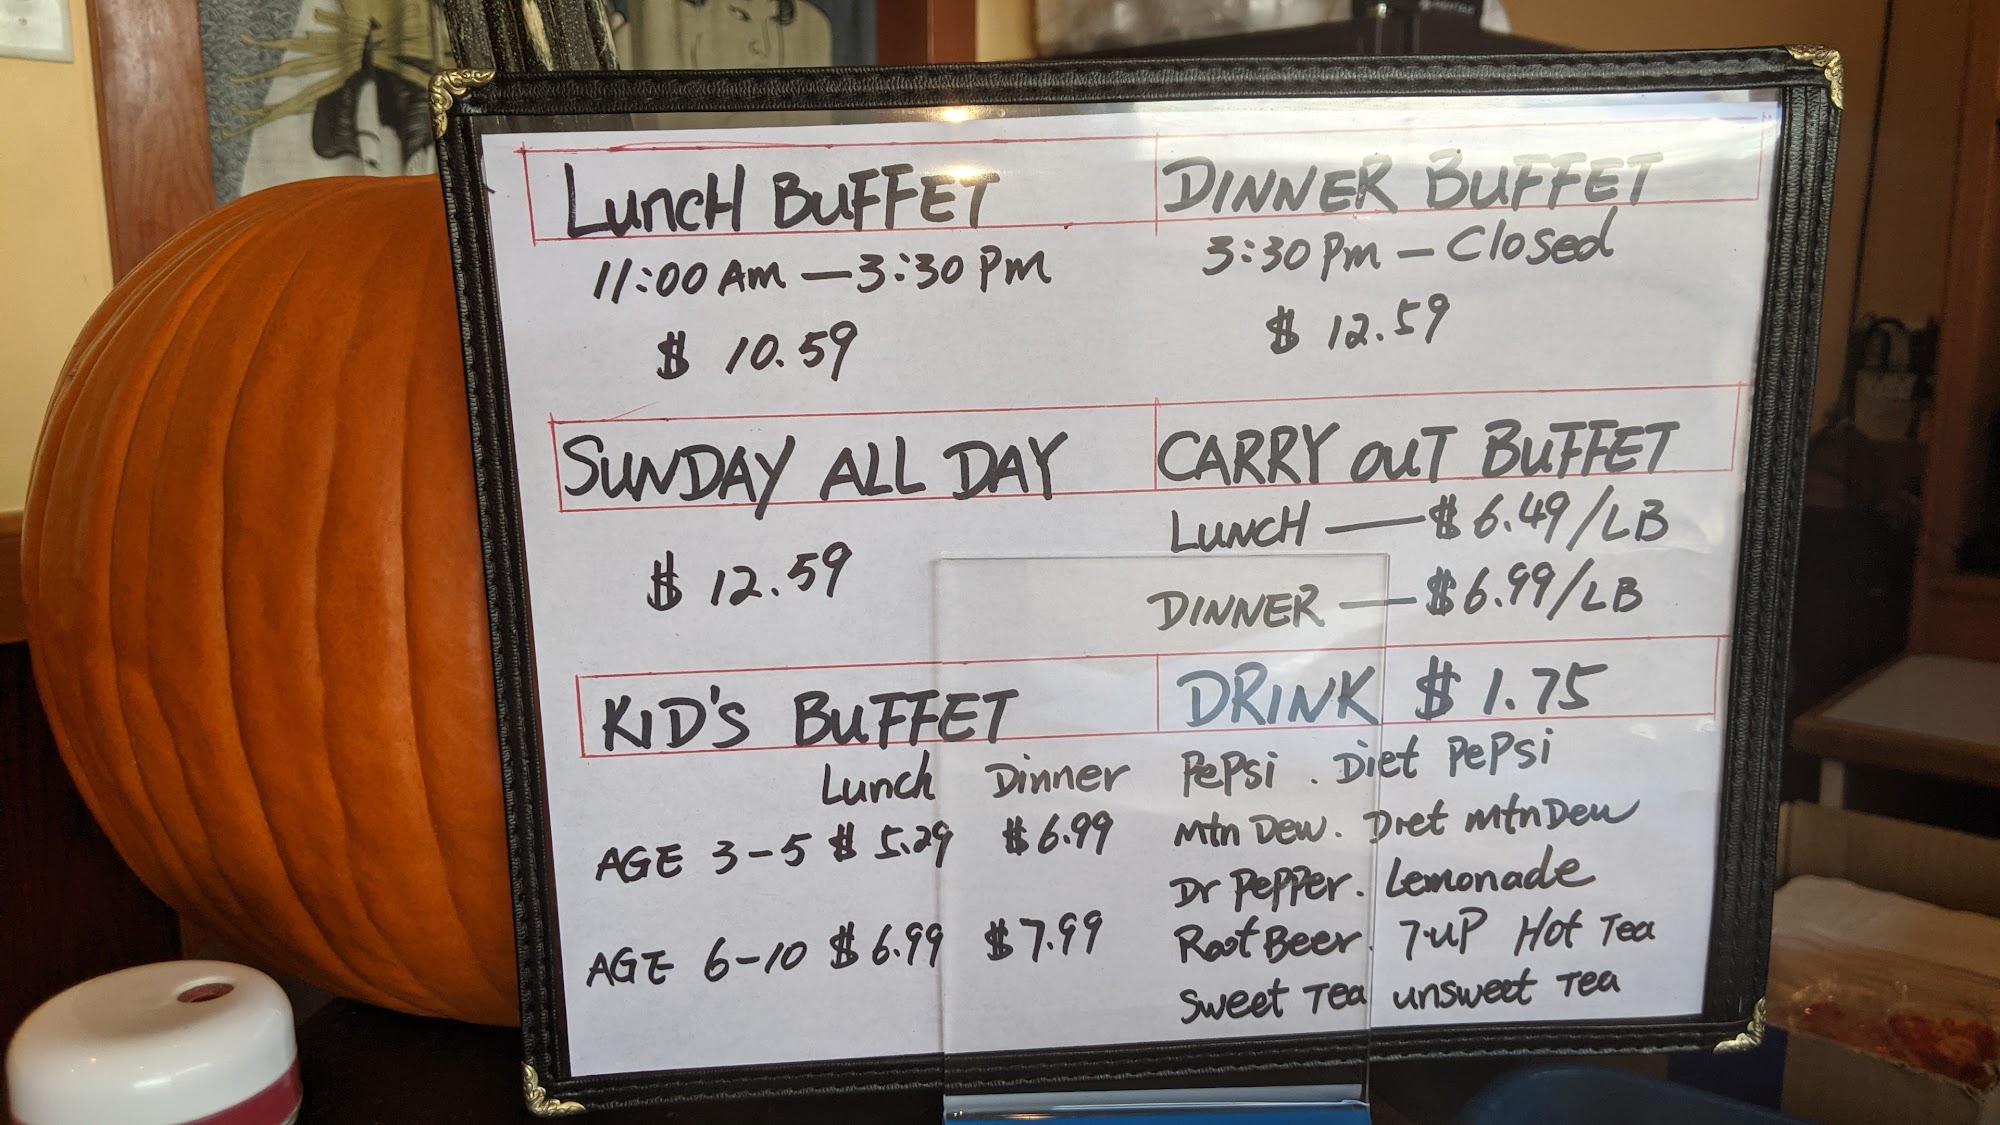 LuncH BUFFET
11:00 Am — 3:30 Pm
$ 10.59
DINNER BUFFET
3:30 Pm — Closed
$ 12.59
SUNDAY ALL DAY
$ 12.59
CARRY OUT BUFFET
LUNCH — $ 6.49/LB
DINNER — $ 6.99/LB
KID'S BUFFET
Lunch Dinner
AGE 3-5 $ 5.29 $ 6.99
AGE 6-10 $ 6.99 $ 7.99
DRINK $ 1.75
PePsi . Diet PePsi
Mtn Dew. Diet mtn Dew
Dr PePPer. Lemonade
Root Beer. 7-UP Hot Tea
Sweet Tea unsweet Tea